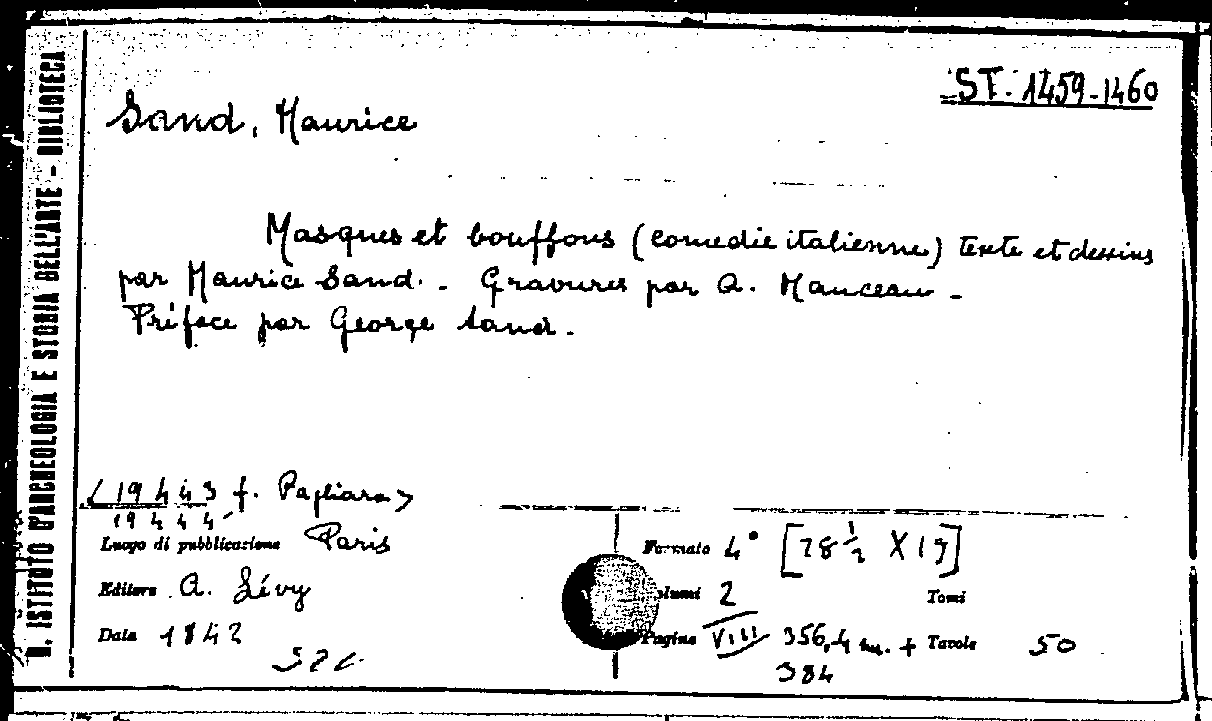 R. ISTITUTO D'ARCHEOLOGIA E STORIA DELL'ARTE - BIBLIOTECA
ST. 1459-1460
Sand, Maurice
Masques et bouffons (comedie italienne) texte et dessins
par Maurice Sand. - Gravures par A. Manceau -
Préface par George Sand.
(19443 f. Pagliara)
19444
Luogo di pubblicazione Paris
Formato 4° [28 ½ X 19]
Editore A. Lévy
Volumi 2 Tomi
Data 1862
Pagine VIII 356, 4 nn. + Tavole 50
384